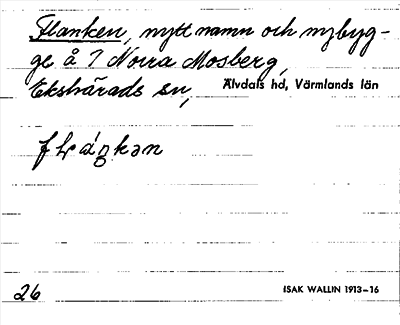 Flanken, nytt namn och nybyg-
ge å 7 Norra Mosberg,
Ekshärads sn, Älvdals hd, Värmlands län
26
ISAK WALLIN 1913–16